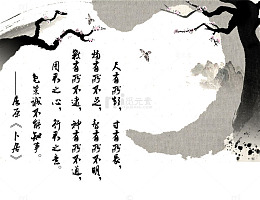 尺有所短，寸有所长，
物有所不足，智有所不明，
数有所不逮，神有所不通，
用君之心，行君之意。
龟策诚不能知事。
——屈原《卜居》